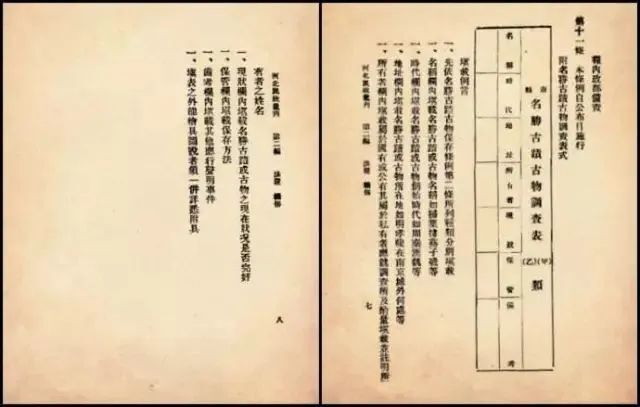 內政部備查
第十一條 本條例自公布日施行
附名勝古蹟古物調查表式
縣 名勝古蹟古物調查表 (甲)(乙) 類
名稱 時代 地址 所有者 現狀 保管 備考
填載例言
一、先依名勝古蹟古物保存條例第二條所列種類分別填載
一、名稱欄內填載名勝古蹟或古物名稱如掃葉樓燕子磯等
一、時代欄內填載名勝古蹟或古物創始時代如周秦漢魏等
一、地址欄內填載名勝古蹟或古物所在地如明孝陵在南京城外何處等
一、所有者欄內填載屬於國有或公有其屬於私有者應就調查所及酌量填載並註明所
河北民政彙刊 第二編 法規
七
河北民政彙刊 第二編 法規
八
有者之姓名
一、現狀欄內填載名勝古蹟或古物之現在狀況是否完好
一、保管欄內填載保存方法
一、備考欄內填載其他應行聲明事件
一、填表之外能繪具圖說者須一併詳悉附具